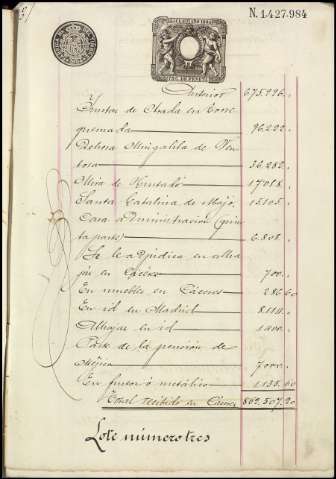 N. 1.427.984
Anterior 675.996.
Puntos de Ahada en Torre
quemada 96.222.
Dehesa Mingalila de
36.282.
Mira de Hurtado 17018.
Santa Catalina de Majo. 15105.
Casa administracion (quin
ta parte) 6.808.
Se le adjudica en alha
jas en Cáceres 700.
En muebles en Cáceres 286 60
En id en Madrid 8114.
Alhajas en id 1000.
Parte de la pension de
Mejico 7000.
En fincas ó metálico 1.135.60
Total recibido en 862.507.20
Lote número tres